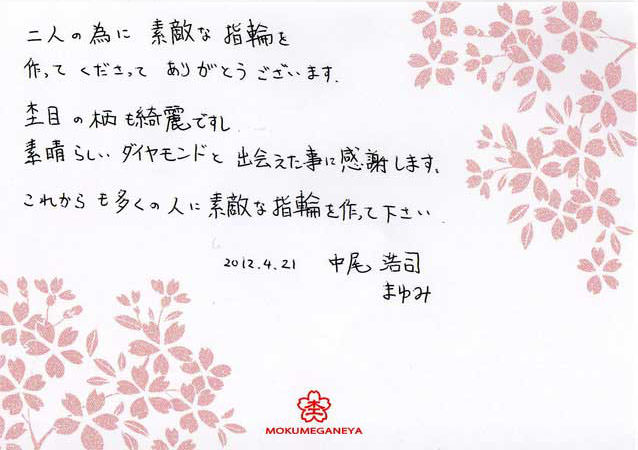 二人の為に 素敵な指輪を
作ってくださって ありがとうございます.
杢目の柄も綺麗ですし
素晴らしいダイヤモンドと 出会えた事に感謝します。
これからも多くの人に素敵な指輪を作って下さい
2012.4.21 中尾 浩司
まゆみ
杢
MOKUMEGANEYA